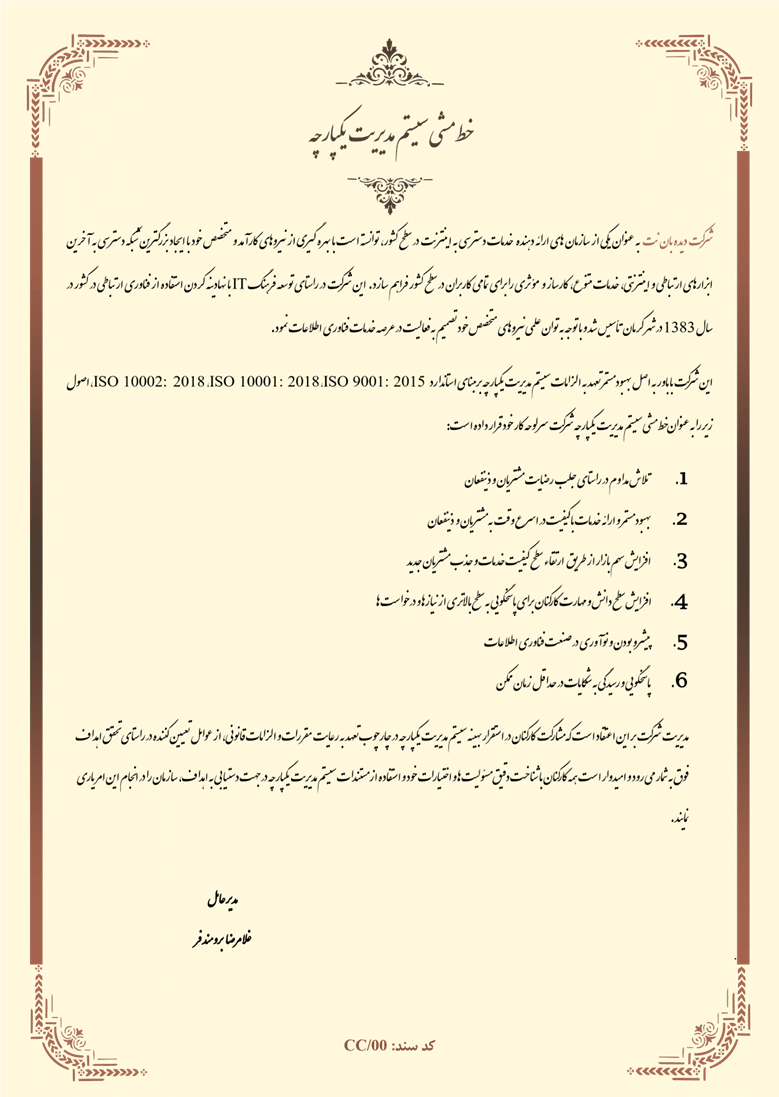 خط مشی سیستم مدیریت یکپارچه
شرکت دیده بان نت به عنوان یکی از سازمان های ارائه دهنده خدمات دسترسی به اینترنت در سطح کشور، توانسته است با بهره گیری از نیروهای کارآمد و متخصص خود با ایجاد بزرگترین شبکه دسترسی به آخرین
ابزارهای ارتباطی و اینترنتی، خدمات متنوع، کارساز و مؤثری را برای تمامی کاربران در سطح کشور فراهم سازد. این شرکت در راستای توسعه فرهنگ IT با نهادینه کردن استفاده از فناوری ارتباطی در کشور در
سال 1383 در شهر کرمان تأسیس شد و با توجه به توان علمی نیروهای متخصص خود تصمیم به فعالیت در عرصه خدمات فناوری اطلاعات نمود.
این شرکت با باور به اصل بهبود مستمر تعهد به الزامات سیستم مدیریت یکپارچه بر مبنای استاندارد ISO 9001: 2015، ISO 10001: 2018، ISO 10002: 2018، اصول
زیر را به عنوان خط مشی سیستم مدیریت یکپارچه شرکت سرلوحه کار خود قرار داده است:
1. تلاش مداوم در راستای جلب رضایت مشتریان و ذینفعان
2. بهبود مستمر و ارائه خدمات با کیفیت در اسرع وقت به مشتریان و ذینفعان
3. افزایش سهم بازار از طریق ارتقاء سطح کیفیت خدمات و جذب مشتریان جدید
4. افزایش سطح دانش و مهارت کارکنان برای پاسخگویی به سطح بالاتری از نیازها و درخواست ها
5. پیشرو بودن و نوآوری در صنعت فناوری اطلاعات
6. پاسخگویی و رسیدگی به شکایات در حداقل زمان ممکن
مدیریت شرکت بر این اعتقاد است که مشارکت کارکنان در استقرار بهینه سیستم مدیریت یکپارچه در چارچوب تعهد به رعایت مقررات و الزامات قانونی، از عوامل تعیین کننده در راستای تحقق اهداف
فوق به شمار می رود و امیدوار است همه کارکنان با شناخت دقیق مسئولیت ها و اختیارات خود و استفاده از مستندات سیستم مدیریت یکپارچه در جهت دستیابی به اهداف، سازمان را در انجام این امر یاری
نمایند.
مدیرعامل
غلامرضا برومندفر
کد سند: CC/00